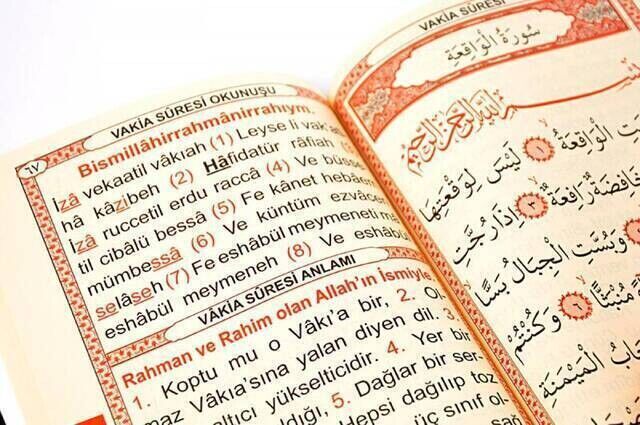 VAKİA SÛRESİ OKUNUŞU
Bismillâhirrahmânirrahıym.
İzâ vekaatil vâkıah (1) Leyse li vak'at
hâ kâzibeh (2) Hâfidatür râfiah
İzâ ruccetil erdu raccâ (4) Ve büsse
til cibâlü bessâ (5) Fe kânet hebâen
mümbessâ (6) Ve küntüm ezvâcen
selâseh (7) Fe eshâbül meymeneti ma
eshâbül meymeneh (8) Ve eshâbü
VÂKİA SÛRESİ ANLAMI
Rahman ve Rahim olan Allah'ın İsmiyle
1. Koptu mu o Vâkı'a bir, 2. Ol-
maz Vâkıa'sına yalan diyen dil. 3.
altıcı yükselticidir. 4. Yer bir
ldığı, 5. Dağlar bir ser-
Hepsi dağılıp toz
üç sınıf ol-
sağ
٦٧
VAKİA SÛRESİ
سُورَةُ الْوَاقِعَةِ
بِسْمِ اللّٰهِ الرَّحْمٰنِ الرَّحِيمِ
الْوَاقِعَةُ ١ لَيْسَ لِوَقْعَتِهَا
خَافِضَةٌ رَافِعَةٌ ٣ اِذَا رُجَّتِ
وَبُسَّتِ الْجِبَالُ بَسًّا
مُنْبَثًّا ٦ وَكُنْتُمْ
الْمَيْمَنَةِ